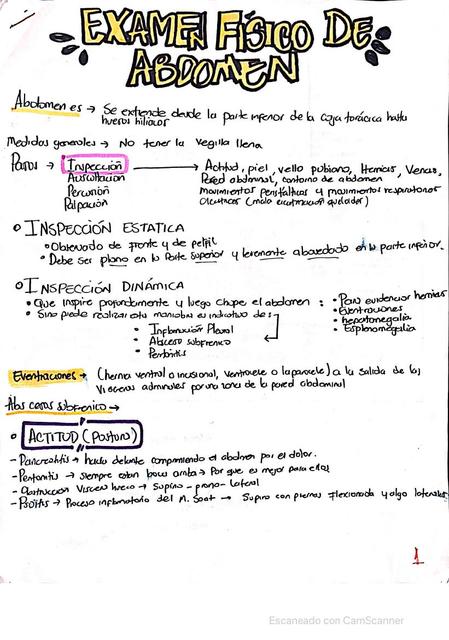 EXAMEN FÍSICO DE
ABDOMEN
Abdomen es → Se extiende desde la parte inferior de la caja torácica hasta
huesos hiliacos
Medidas generales → No tener la vegilla llena
Pasos → Inspección → Actitud, piel, vello pubiano, Hernias, Venas,
Auscultación Pared abdominal, contorno de abdomen
Percusión movimientos peristalticos y movimientos respiratorios
Palpación Cicatrices (mala cicatrización queloides)
• INSPECCIÓN ESTATICA
• Observado de frente y de perfil
• Debe ser plano en la Parte Superior y levemente abovedado en la parte inferior.
• INSPECCIÓN DINÁMICA
• Que inspire profundamente y luego chupe el abdomen : • Para evidenciar hernias
• Sino puede realizar esta maniobra es indicativo de: • Eventraciones
• Inflamación Pleural • hepatomegalia
• Absceso subfrenico • Esplenomegalia
• Peritonitis
Eventraciones → (hernia ventral o incisional, ventrocele o laparocele) a la salida de las
Visceras adminales por una zona de la pared abdominal
Abs cesos subfrenico →
• ACTITUD (Postura)
- Pancreatitis → hacia delante comprimiendo el abdomen por el dolor.
- Peritonitis → siempre estan boca arriba → Por que es mejor para ellos
- Obstrucción Viscera hueca → Supino - prono - lateral
- Psoitis → Proceso inflamatorio del M. Soat → Supino con piernas flexionada y algo lateralex
1
Escaneado con CamScanner